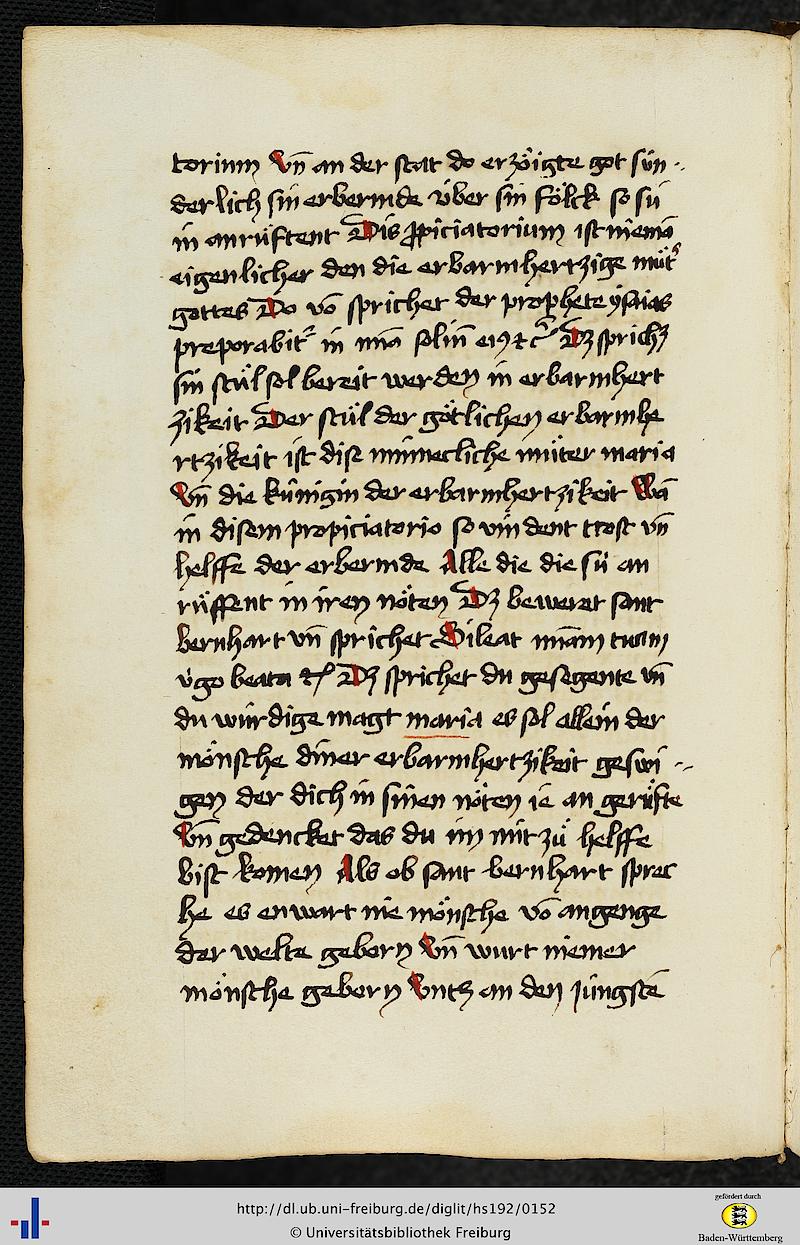 torium Vn̄ an der stat do erzöigte got sún-
derlich sin erbermde úber sin fölck so sú
in anrůftent Dis ꝓpiciatorium ist niemā
eigenlicher den die erbarmhertzige můt̉
gottes Do vō sprichet der prophete ysaias
preporabit᷑ in mīa soliū eiꝰ ⁊c̄ Dz sprichz
sin stůl sol bereit werden in erbarmhert
zikeit Der stůl der götlichen erbarmhe
rtzikeit ist dise minnecliche můter maria
Vn̄ die kúnigin der erbarmhertzikeit Wā
in disem propiciatorio so vindent trost vn̄
helffe der erbermde Alle die die sú an
růffent in iren nöten Dz beweret sant
bernhart vn̄ sprichet Sileat mīam tuam
v̉go beata ⁊c Dz sprichet du gesegente vn̄
du wúrdige magt maria es sol allein der
mönsche diner erbarmhertzikeit geswi-
gen der dich in sinen nöten ie an gerůfte
Vn̄ gedencket das du im nút zů helffe
bist komen Als ob sant bernhart sprec
he es enwart nie mönsche vō angenge
der welte geborn Vn̄ wurt niemer
mönsche geborn Vntz an den jungstē
http://dl.ub.uni-freiburg.de/diglit/hs192/0152
© Universitätsbibliothek Freiburg
gefördert durch
Baden-Württemberg